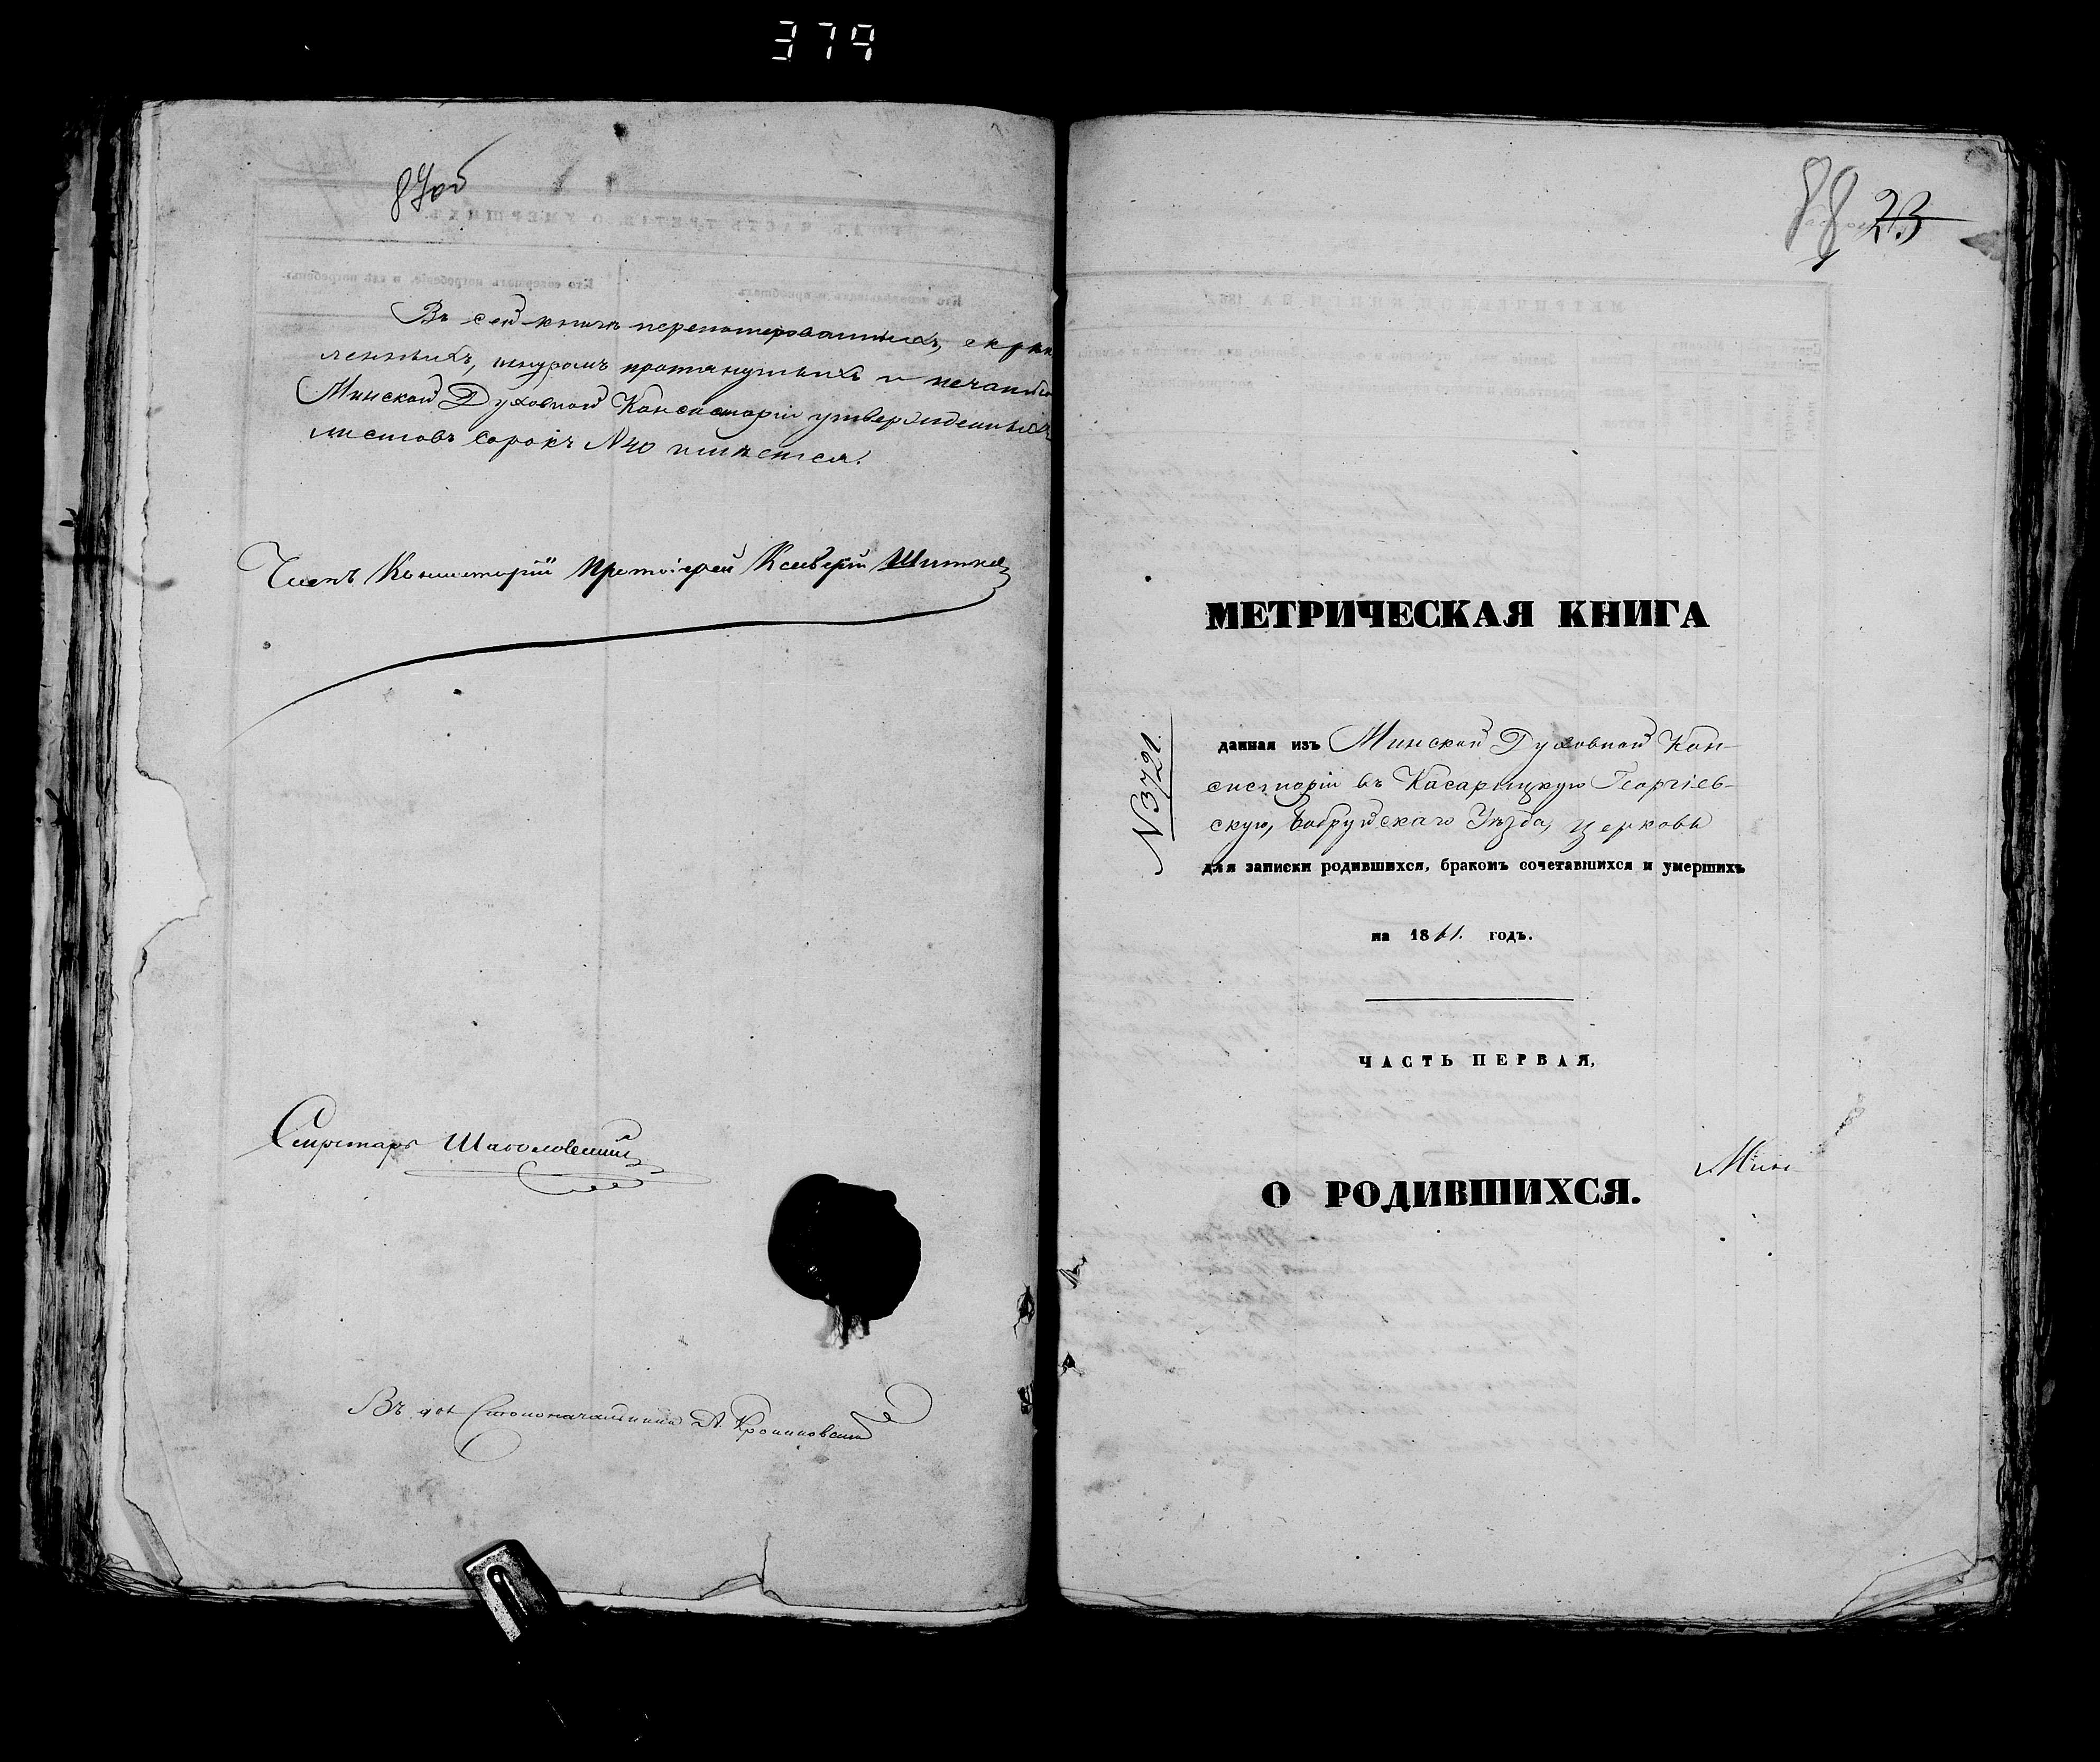 379
87об
Въ сей книгѣ перенумерованныхъ, скрѣп
ленныхъ, шнуромъ протянутыхъ и печатью
Минской Духовной Консисторіи утвержденныхъ
листовъ сорокъ N40 имѣется.
Членъ Консисторіи Протоіерей
Секретарь
Въ дол Столоначальника А.
88 23
МЕТРИЧЕСКАЯ КНИГА
N3721.
данная изъ Минской Духовной Кон-
систоріи въ Касарицкую Георгіев-
скую, Бобруйскаго Уѣзда, церковь
для записки родившихся, бракомъ сочетавшихся и умершихъ
на 1861. годъ.
ЧАСТЬ ПЕРВАЯ,
Мин
О РОДИВШИХСЯ.